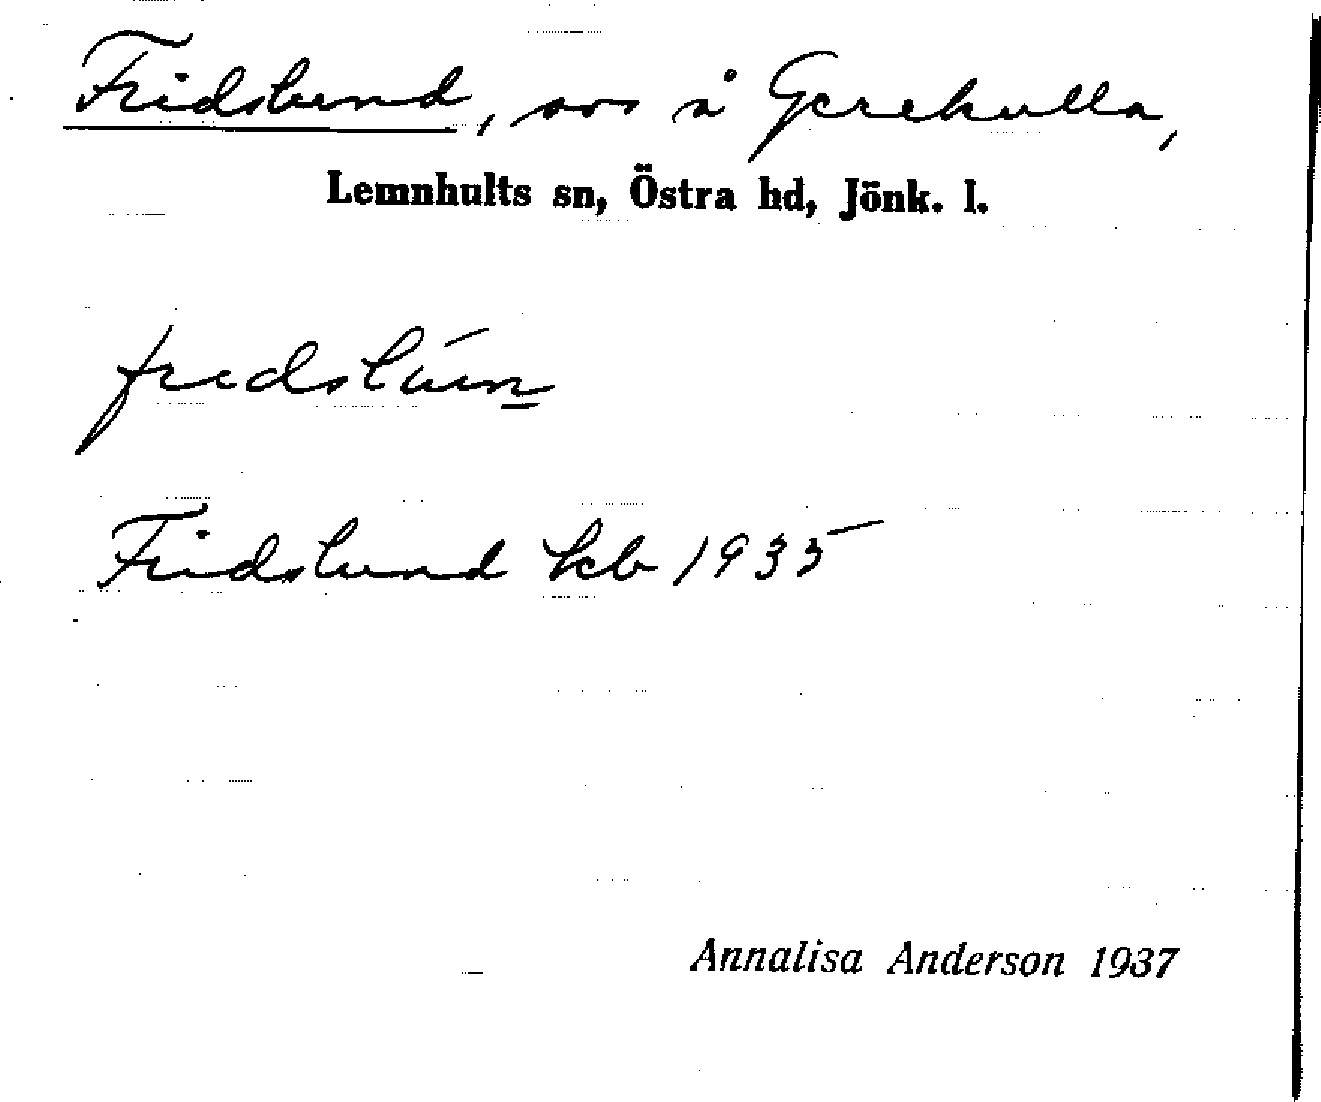 Fridslund, avs å Gerekulla,
Lemnhults sn, Östra hd, Jönk. l.
fredslún
Fridslund kb 1935
Annalisa Anderson 1937